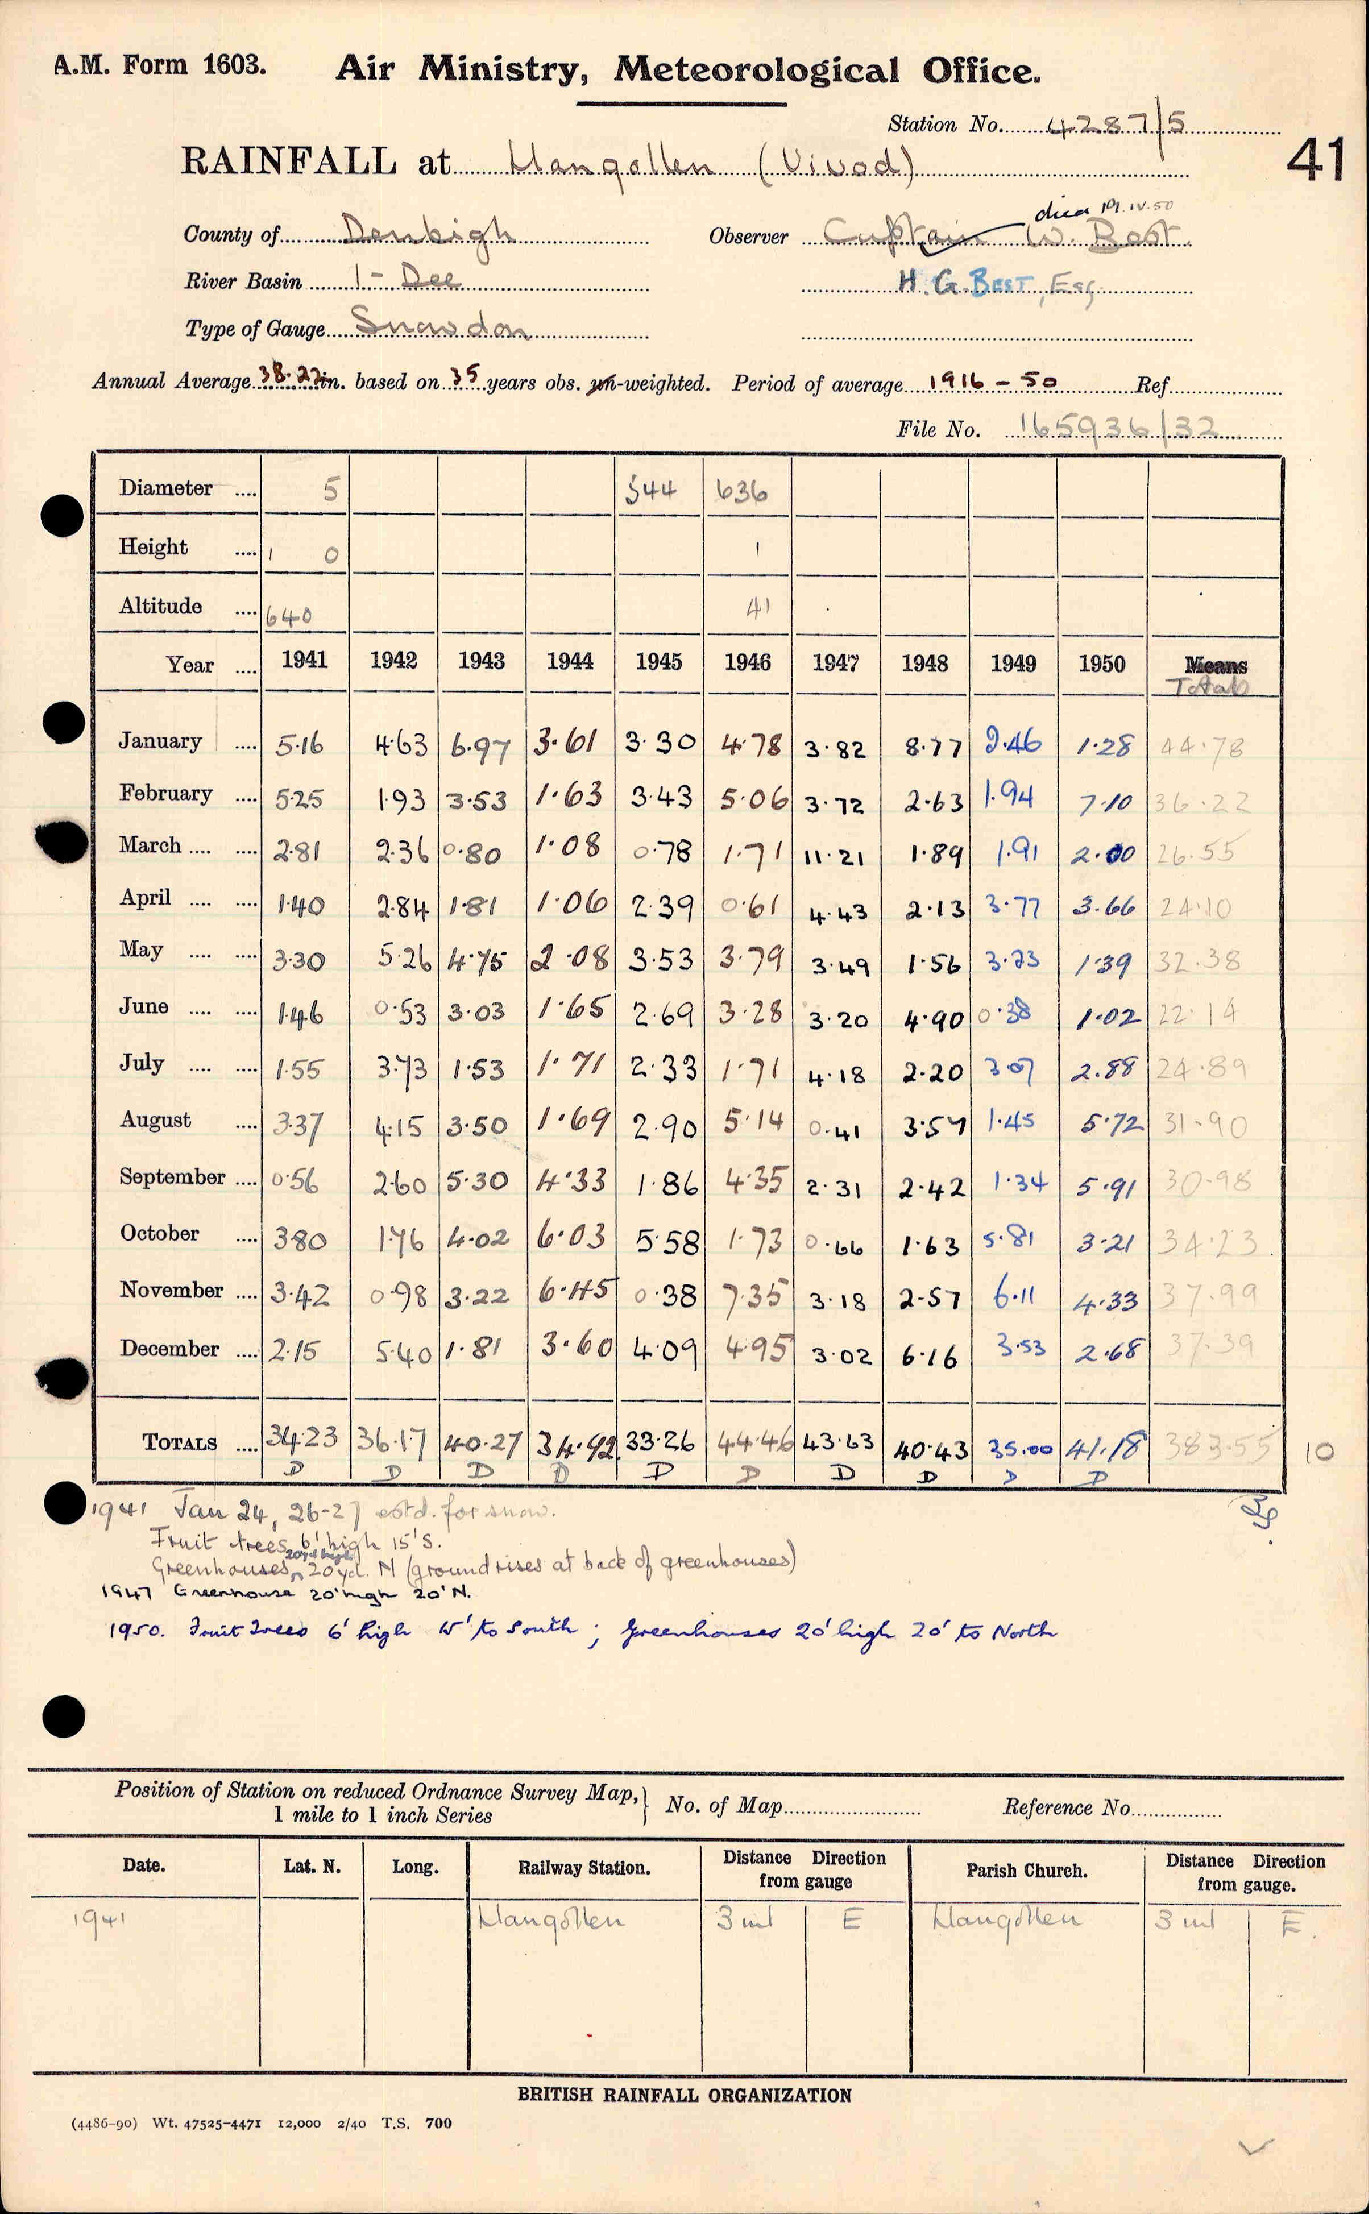 A.M. Form 1603. Air Ministry, Meteorological Office.
Station No. 4287/5
41
RAINFALL at Llangollen (Vivod)
died 19.IV.50
County of Denbigh Observer Captain W. Best.
River Basin 1 - Dee H. G. BEST, Esq
Type of Gauge Snowdon
Annual Average 38.22 in. based on 35 years obs. un-weighted. Period of average 1916 - 50 Ref
File No. 165936/32
Diameter .... 5 344 636
Height .... 1 0 1
Altitude .... 640 41
Year .... 1941 1942 1943 1944 1945 1946 1947 1948 1949 1950 Means
Totals
January .... 5.16 4.63 6.97 3.61 3.30 4.78 3.82 8.77 2.46 1.28 44.78
February .... 5.25 1.93 3.53 1.63 3.43 5.06 3.72 2.63 1.94 7.10 36.22
March .... .... 2.81 2.36 0.80 1.08 0.78 1.71 11.21 1.89 1.91 2.00 26.55
April .... .... 1.40 2.84 1.81 1.06 2.39 0.61 4.43 2.13 3.77 3.66 24.10
May .... .... 3.30 5.26 4.75 2.08 3.53 3.79 3.49 1.56 3.23 1.39 32.38
June .... .... 1.46 0.53 3.03 1.65 2.69 3.28 3.20 4.90 0.38 1.02 22.14
July .... .... 1.55 3.73 1.53 1.71 2.33 1.71 4.18 2.20 3.07 2.88 24.89
August .... 3.37 4.15 3.50 1.69 2.90 5.14 0.41 3.57 1.45 5.72 31.90
September .... 0.56 2.60 5.30 4.33 1.86 4.35 2.31 2.42 1.34 5.91 30.98
October .... 3.80 1.76 4.02 6.03 5.58 1.73 0.66 1.63 5.81 3.21 34.23
November .... 3.42 0.98 3.22 6.45 0.38 7.35 3.18 2.57 6.11 4.33 37.99
December .... 2.15 5.40 1.81 3.60 4.09 4.95 3.02 6.16 3.53 2.68 37.39
TOTALS .... 34.23 36.17 40.27 34.92 33.26 44.46 43.63 40.43 35.00 41.18 383.55 10
D D D D D D D D D D
1941 Jan 24, 26-27 estd. for snow.
Fruit trees 6' high 15' S.
Greenhouses 20yd. N (ground rises at back of greenhouses)
1947 Greenhouse 20' high 20' N.
1950. Fruit Trees 6' high 15' to South ; Greenhouses 20' high 20' to North
Position of Station on reduced Ordnance Survey Map, 1 mile to 1 inch Series } No. of Map Reference No.
Date. Lat. N. Long. Railway Station. Distance Direction from gauge Parish Church. Distance Direction from gauge.
1941 Llangollen 3 ml E Llangollen 3 ml E.
BRITISH RAINFALL ORGANIZATION
(4486-90) Wt. 47525-4471 12,000 2/40 T.S. 700